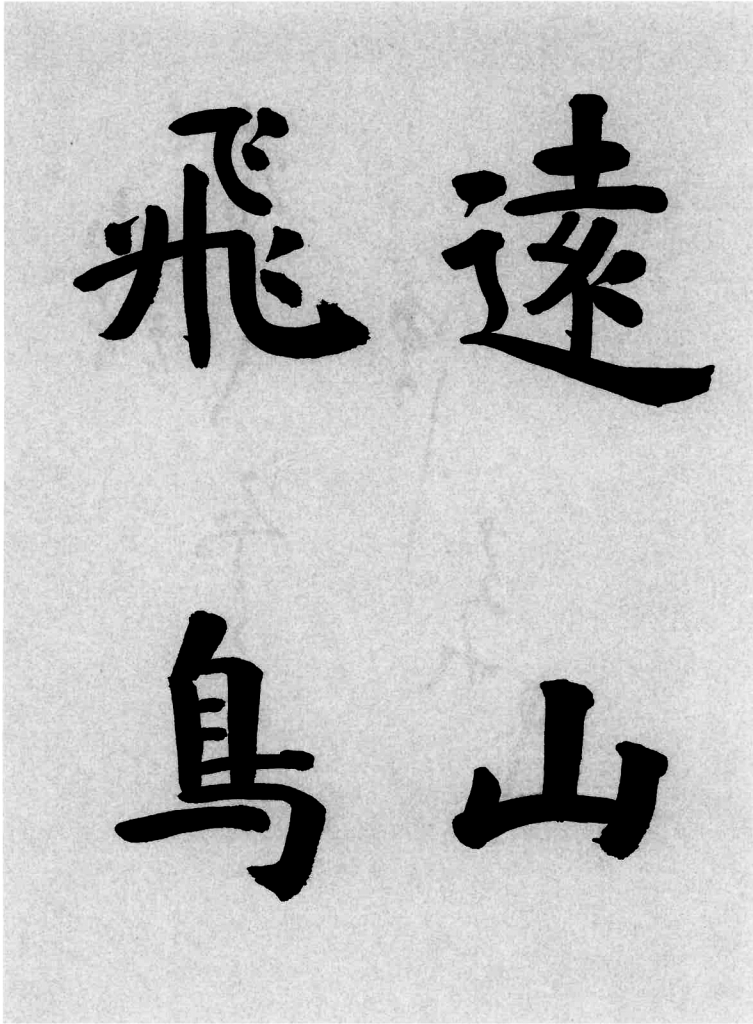 遠山
飛鳥